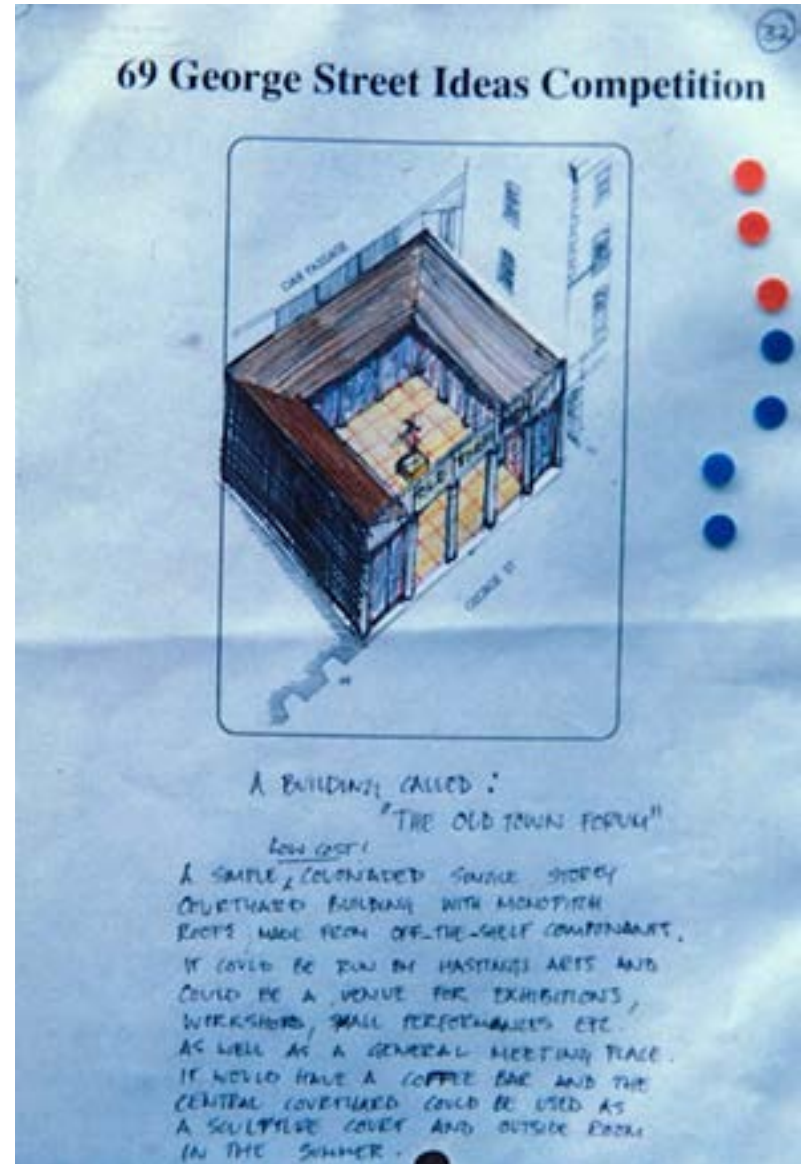 32
69 George Street Ideas Competition
CAR PASSAGE
OLD TOWN
GEORGE ST
A BUILDING CALLED :
"THE OLD TOWN FORUM"
LOW COST!
A SIMPLE, COLONADED SINGLE STOREY
COURTYARD BUILDING WITH MONOPITCH
ROOFS MADE FROM OFF-THE-SHELF COMPONANTS.
IT COULD BE RUN BY HASTINGS ARTS AND
COULD BE A VENUE FOR EXHIBITIONS,
WORKSHOPS, SMALL PERFORMANCES ETC
AS WELL AS A GENERAL MEETING PLACE.
IT WOULD HAVE A COFFEE BAR AND THE
CENTRAL COURTYARD COULD BE USED AS
A SCULPTURE COURT AND OUTSIDE ROOM
IN THE SUMMER.